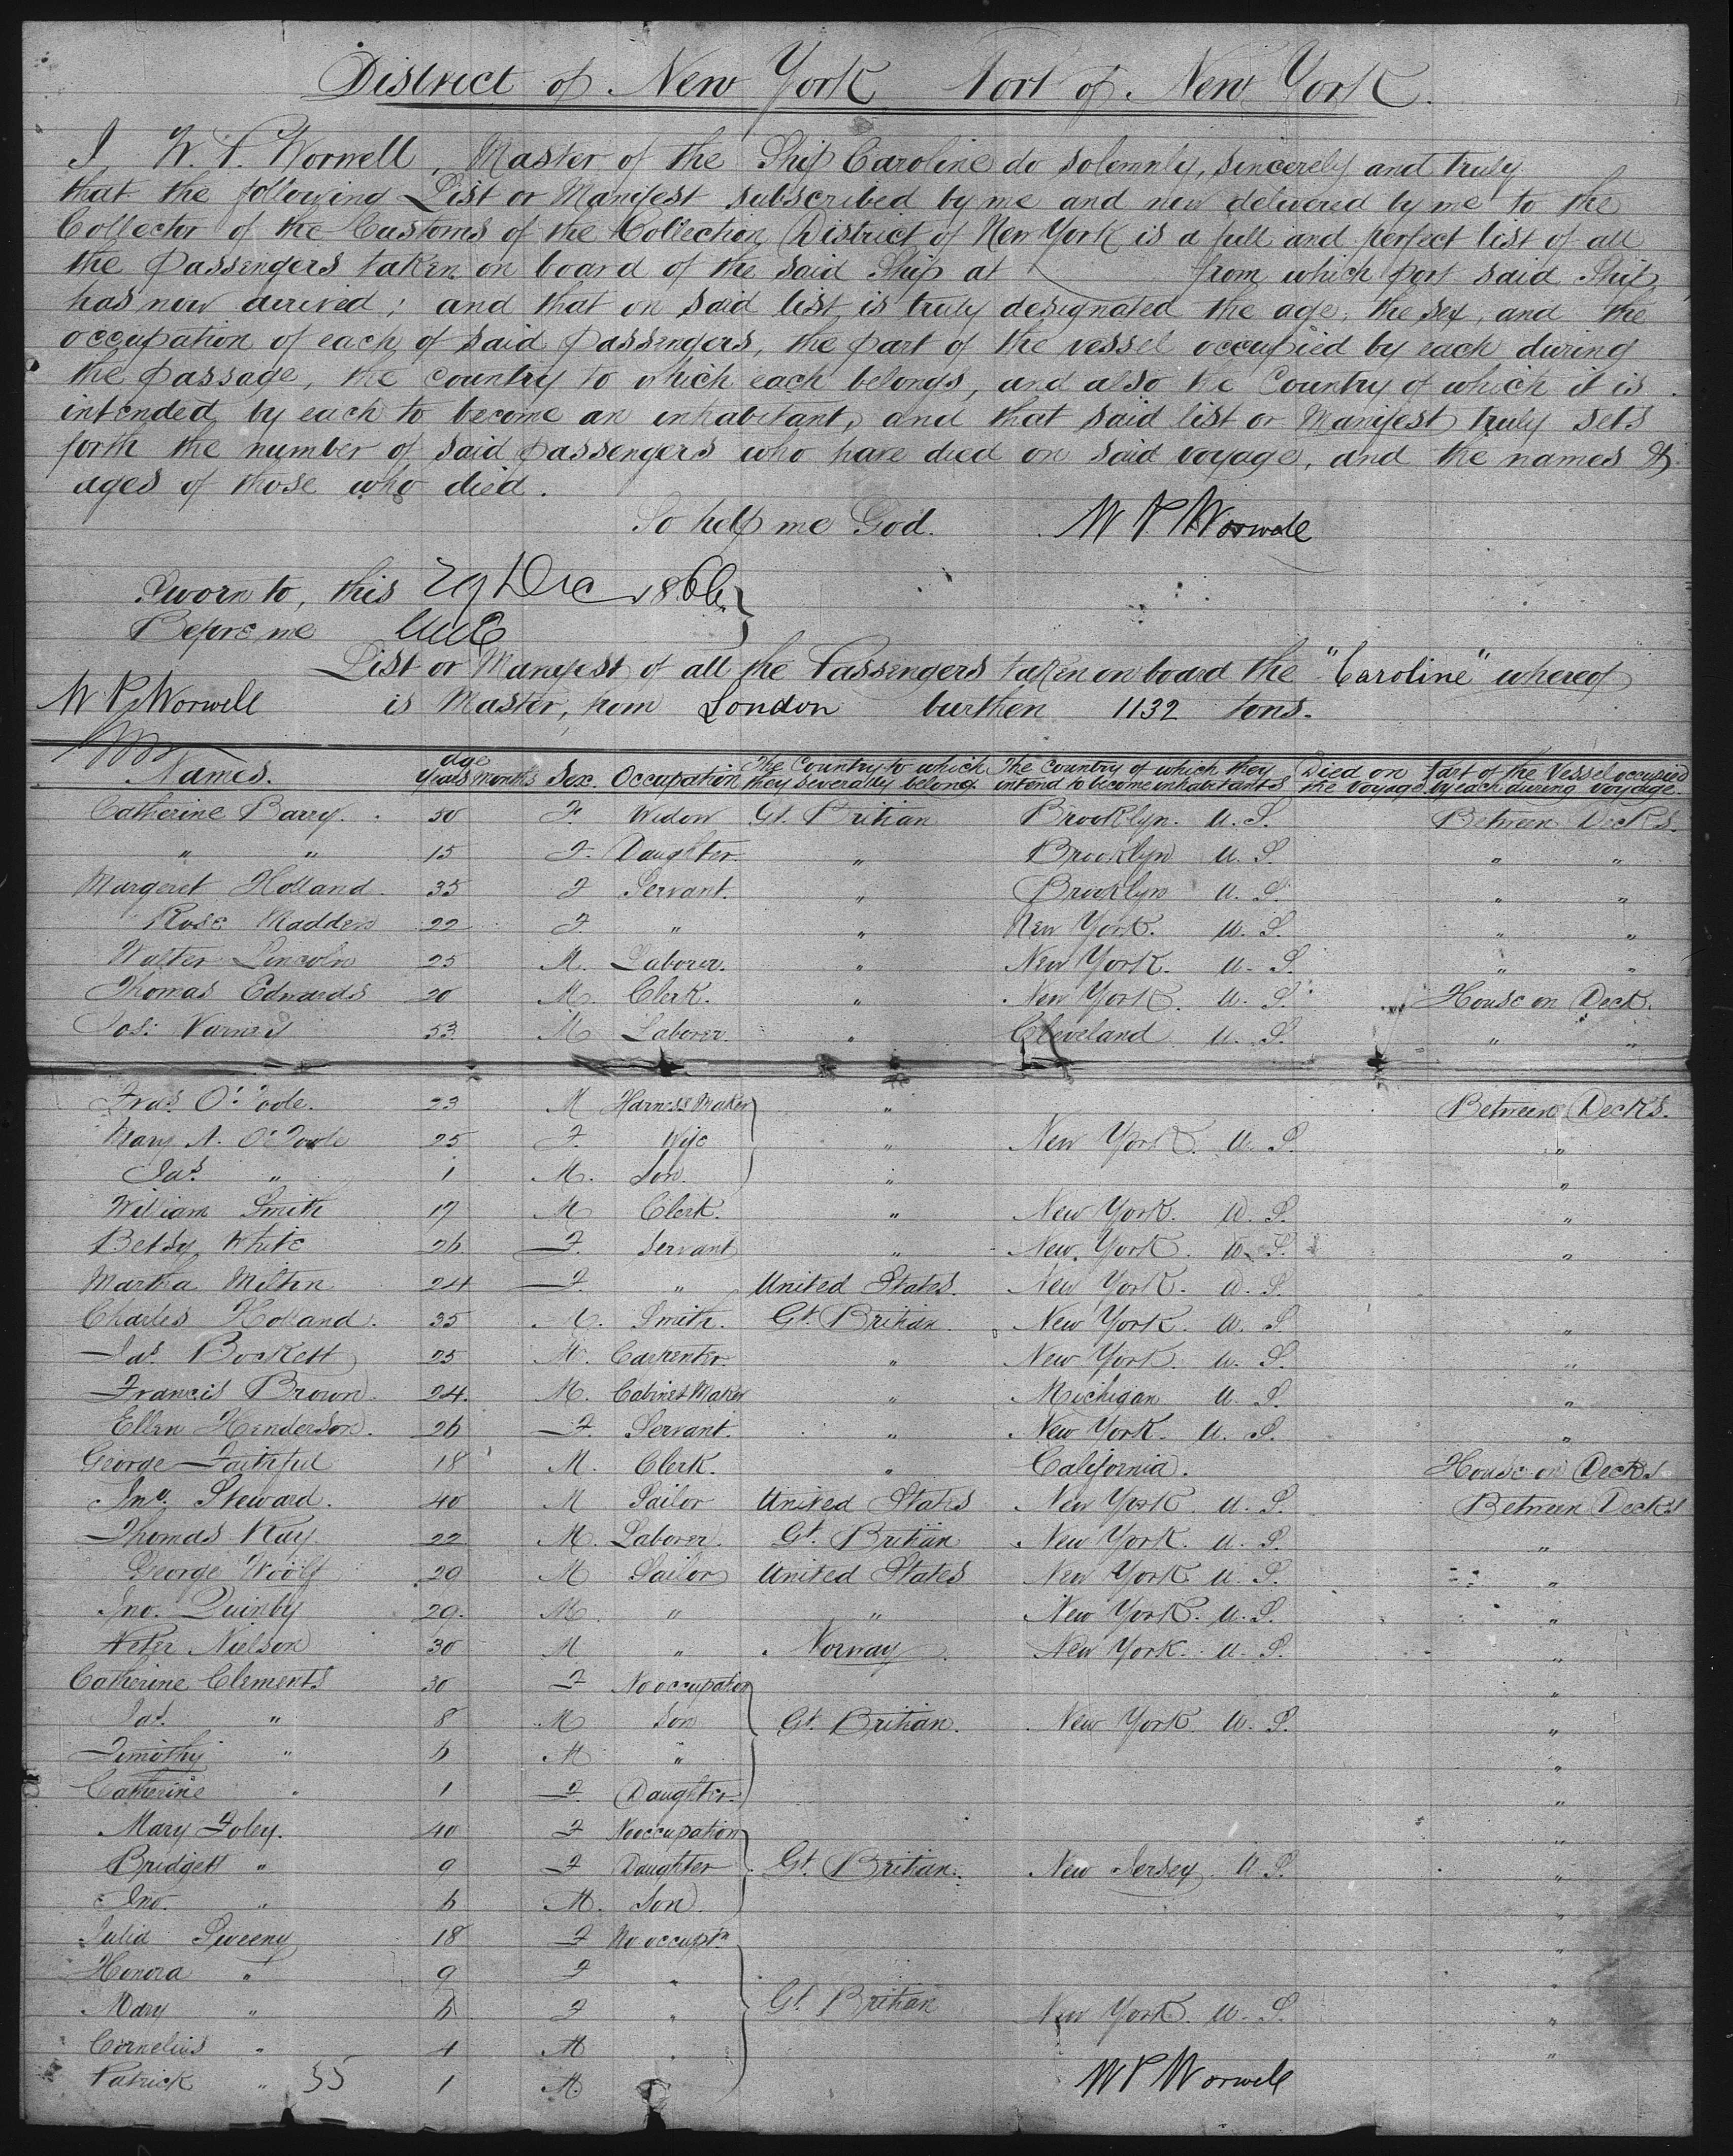 District of New York Port of New York.
I, W. P. Worwell, Master of the Ship Caroline do solemnly, sincerely and truly
that the following List or Manifest subscribed by me and now delivered by me to the
Collector of the Customs of the Collection District of New York is a full and perfect list of all
the passengers taken on board of the said Ship at from which port said Ship
has now arrived; and that on said list is truly designated the age, the sex, and the
occupation of each of said passengers, the part of the vessel occupied by each during
the passage, the country to which each belongs, and also the Country of which it is
intended by each to become an inhabitant, and that said list or Manifest truly sets
forth the number of said passengers who have died on said voyage, and the names &
ages of those who died.
So help me God. W P Worwell
Sworn to, this 29 Dec 1866
Before me
List or Manifest of all the Passengers taken on board the "Caroline" whereof
W P Worwell is Master, from London burthen 1132 tons.
Names. Age Years Months Sex. Occupation The Country to which they severally belong. The Country of which they intend to become inhabitants Died on the Voyage. Part of the Vessel occupied by each during voyage.
Catherine Barry. 50 F. Widow Gt. Britian Brooklyn. U. S. Between Decks.
" " 15 F. Daughter. " Brooklyn U. S. " "
Margeret Holland. 35 F Servant. " Brooklyn U. S. " "
Rose Madden 22 F " " New York. U. S. " "
Walter Lincoln 25 M. Laborer. " New York. U. S. " "
Thomas Edwards 20 M. Clerk. " New York. U. S. House on Deck.
Jos: 53 M Laborer. " Cleveland U. S. " "
Fras. O'Toole. 23 M Harness Maker " Between Decks.
Mary A. O'Toole 25 F. Wife " New York. U. S. "
Jas. " 1 M. Son. " "
William Smith 17 M Clerk. " New York. U. S. "
Betsy White 26 F. Servant " New York. U. S. "
Martha Milton 24 F. " United States. New York. U. S.
Charles Holland. 35 M. Smith. Gt. Britian. New York. U. S. "
Jas. Bockett 25 M. Carpenter. " New York. U. S. "
Francis Brown. 24. M. Cabinet Maker " Michigan U. S. "
Ellen Henderson. 26 F. Servant. " New York. U. S. "
George Faithful 18 M. Clerk. " California. House on Decks
Jno. Steward. 40 M Sailor United States New York. U. S. Between Decks
Thomas Kay. 22 M. Laborer. Gt. Britian New York. U. S. "
George Woolf 20 M Sailor United States New York. U. S. "
Jno. Quinby 29. M. " " New York. U. S. "
Peter Nielson 30 M " Norway. New York. U. S. "
Catherine Clements 30 F No occupation "
Jas. " 8 M Son Gt. Britian. New York. U. S. "
Timothy " 6 M " "
Catherine " 1 F Daughter. "
Mary Foley. 40 F No occupation "
Bridgett " 9 F Daughter Gt. Britian. New Jersey. U. S. "
Jno. " 6 M. Son. "
Julia Sweeny 18 F No occupt.n "
Honora " 9 F " "
Mary " 6 F " Gt. Britian New York. U. S. "
Cornelius " 4 M " "
Patrick " 35 1 M. W P Worwell